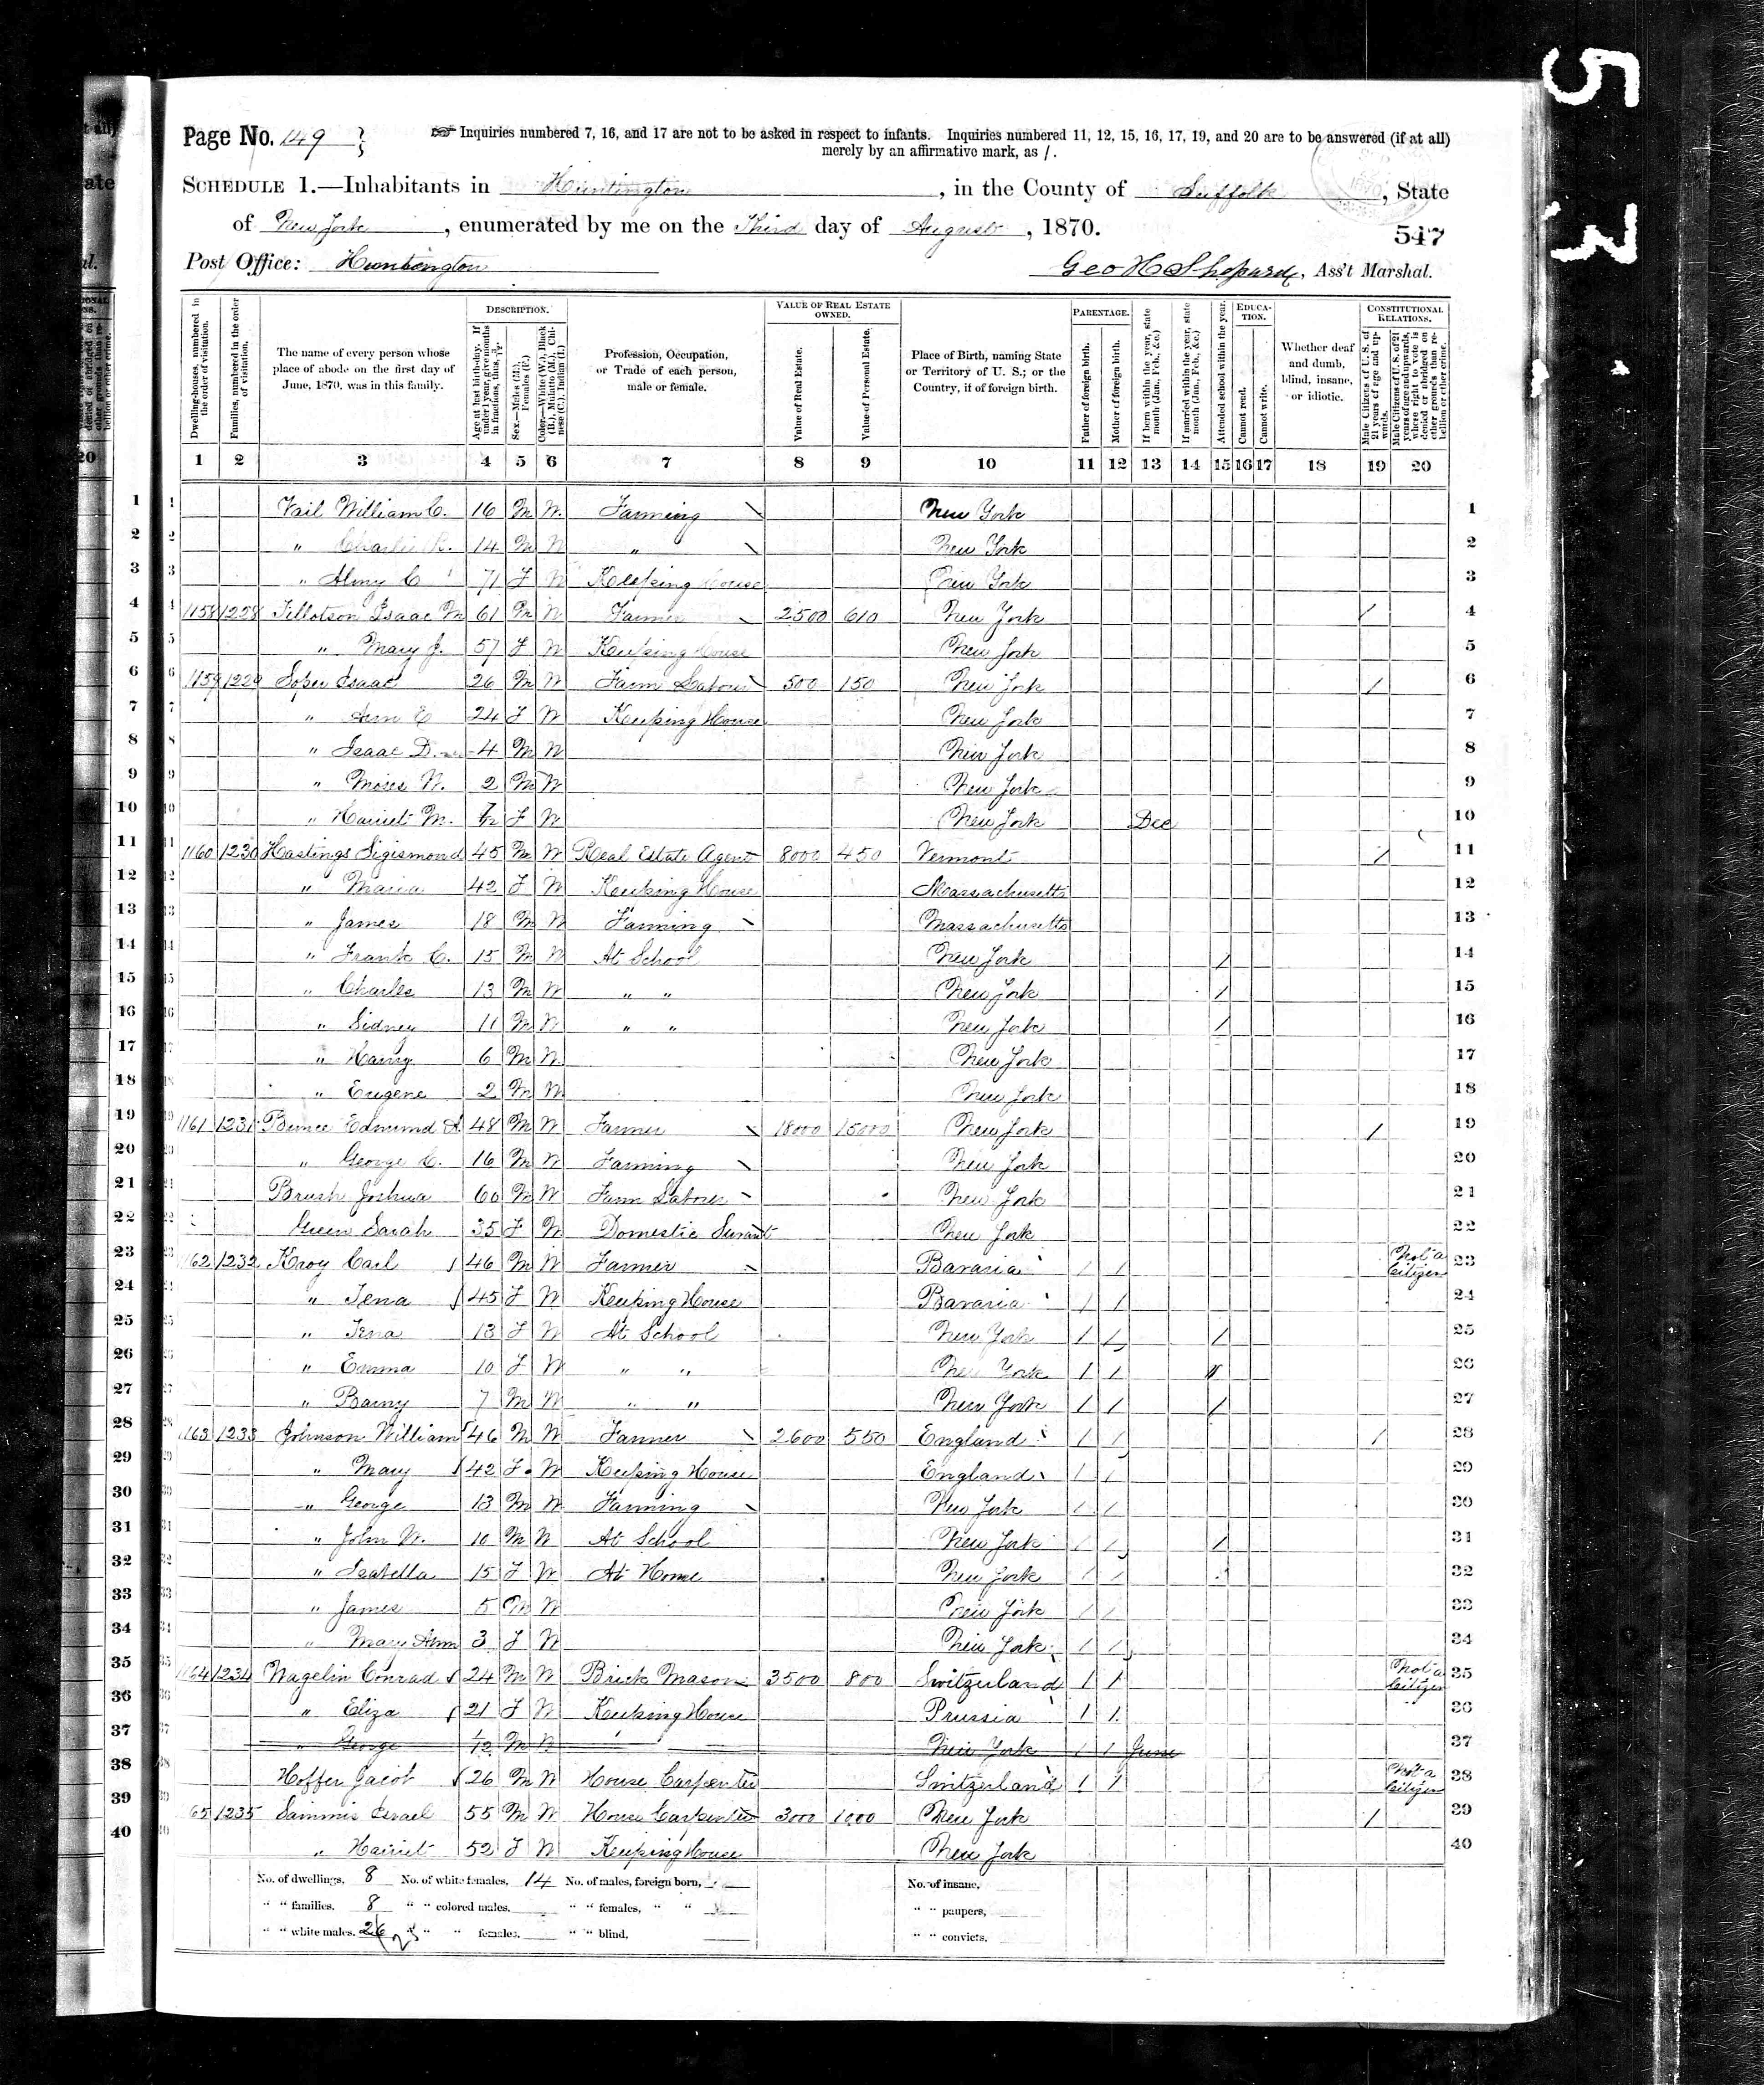 Page No. 149
Inquiries numbered 7, 16, and 17 are not to be asked in respect to infants. Inquiries numbered 11, 12, 15, 16, 17, 19, and 20 are to be answered (if at all)
merely by an affirmative mark, as /.
SCHEDULE 1.—Inhabitants in Huntington, in the County of Suffolk, State
of New York, enumerated by me on the Third day of August, 1870.
547
Post Office: Huntington
Geo H Shepard, Ass't Marshal.
Dwelling-houses, numbered in the order of visitation.
Families, numbered in the order of visitation.
The name of every person whose place of abode on the first day of June, 1870, was in this family.
DESCRIPTION.
Age at last birth-day. If under 1 year, give months in fractions, thus, 3/12.
Sex.—Males (M.), Females (F.)
Color.—White (W.), Black (B.), Mulatto (M.), Chinese (C.), Indian (I.)
Profession, Occupation, or Trade of each person, male or female.
VALUE OF REAL ESTATE OWNED.
Value of Real Estate.
Value of Personal Estate.
Place of Birth, naming State or Territory of U. S.; or the Country, if of foreign birth.
PARENTAGE.
Father of foreign birth.
Mother of foreign birth.
If born within the year, state month (Jan., Feb., &c.)
If married within the year, state month (Jan., Feb., &c.)
Attended school within the year.
EDUCATION.
Cannot read.
Cannot write.
Whether deaf and dumb, blind, insane, or idiotic.
CONSTITUTIONAL RELATIONS.
Male Citizens of U. S. of 21 years of age and upwards.
Male Citizens of U. S. of 21 years of age and upwards, where right to vote is denied or abridged on other grounds than rebellion or other crime.
1 2 3 4 5 6 7 8 9 10 11 12 13 14 15 16 17 18 19 20
1 Vail William C. 16 M W Farming New York 1
2 " Charlie R. 14 M W " New York 2
3 " Almy C 71 F W Keeping House New York 3
4 1158 1228 Tillotson Isaac M 61 M W Farmer 2500 610 New York / 4
5 " Mary J. 57 F W Keeping House New York 5
6 1159 1229 Soper Isaac 26 M W Farm Labour 500 150 New York / 6
7 " Ann E 24 F W Keeping House New York 7
8 " Isaac D. 4 M W New York 8
9 " Moses W. 2 M W New York 9
10 " Harriet M. 7/12 F W New York Dec 10
11 1160 1230 Hastings Sigismond 45 M W Real Estate Agent 8000 450 Vermont / 11
12 " Maria 42 F W Keeping House Massachusetts 12
13 " James 18 M W Farming Massachusetts 13
14 " Frank C. 15 M W At School New York / 14
15 " Charles 13 M W " " New York / 15
16 " Sidney 11 M W " " New York / 16
17 " Harry 6 M W New York 17
18 " Eugene 2 M W New York 18
19 1161 1231 Bunce Edmund A 48 M W Farmer 18000 15000 New York / 19
20 " George C. 16 M W Farming New York 20
21 Brush Joshua 60 M W Farm Labour New York 21
22 Green Sarah 35 F W Domestic Servant New York 22
23 1162 1232 Kroy Carl 46 M W Farmer Bavaria / / Not a Citizen 23
24 " Tena 45 F W Keeping House Bavaria / / 24
25 " Tena 13 F W At School New York / / / 25
26 " Emma 10 F W " " New York / / / 26
27 " Barny 7 M W " " New York / / / 27
28 1163 1233 Johnson William 46 M W Farmer 2600 550 England / / / 28
29 " Mary 42 F W Keeping House England / / 29
30 " George 13 M W Farming New York / / 30
31 " John W. 10 M W At School New York / / / 31
32 " Isabella 15 F W At Home New York / / 32
33 " James 5 M W New York / / 33
34 " Mary Ann 3 F W New York / / 34
35 1164 1234 Wagelin Conrad 24 M W Brick Mason 3500 800 Switzerland / / Not a Citizen 35
36 " Eliza 21 F W Keeping House Prussia / / 36
37 " George 1/12 M W New York / / June 37
38 Hoffer Jacob 26 M W House Carpenter Switzerland / / Not a Citizen 38
39 65 1235 Sammis Israel 55 M W House Carpenter 3000 1000 New York / 39
40 " Harriet 52 F W Keeping House New York 40
No. of dwellings, 8 No. of white females, 14 No. of males, foreign born, No. of insane,
" " families, 8 " " colored males, " " females, " " " " paupers,
" " white males, 26 25 " " females, " " blind, " " convicts,